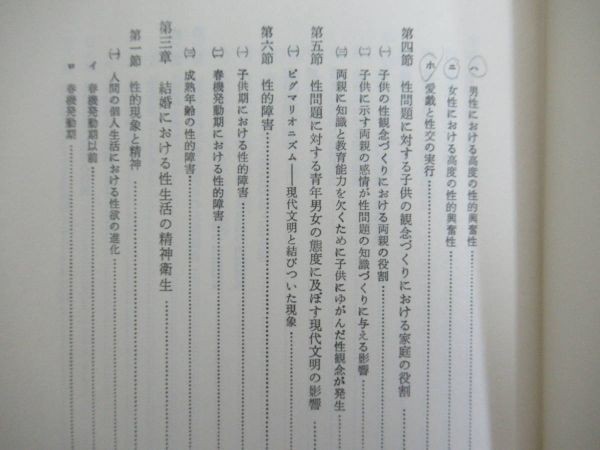 ハ 男性における高度の性的興奮性
ニ 女性における高度の性的興奮性
ホ 愛戯と性交の実行
第四節 性問題に対する子供の観念づくりにおける家庭の役割
㈠ 子供の性観念づくりにおける両親の役割
㈡ 子供に示す両親の感情が性問題の知識づくりに与える影響
㈢ 両親に知識と教育能力を欠くために子供にゆがんだ性観念が発生
第五節 性問題に対する青年男女の態度に及ぼす現代文明の影響
㈠ ピグマリオニズム——現代文明と結びついた現象
第六節 性的障害
㈠ 子供期における性的障害
㈡ 春機発動期における性的障害
㈢ 成熟年齢の性的障害
第三章 結婚における性生活の精神衛生
第一節 性的現象と精神
㈠ 人間の個人生活における性欲の進化
イ 春機発動期以前
ロ 春機発動期